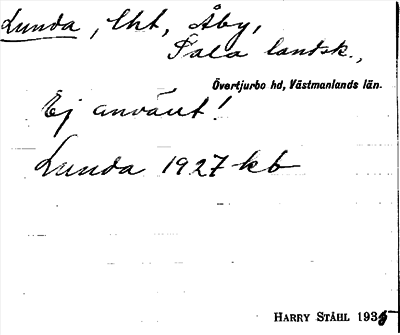 Lunda, lht, Åby,
Sala landsk.,
Övertjurbo hd, Västmanlands län.
Ej använt!
Lunda 1927 kb
HARRY STÅHL 1935